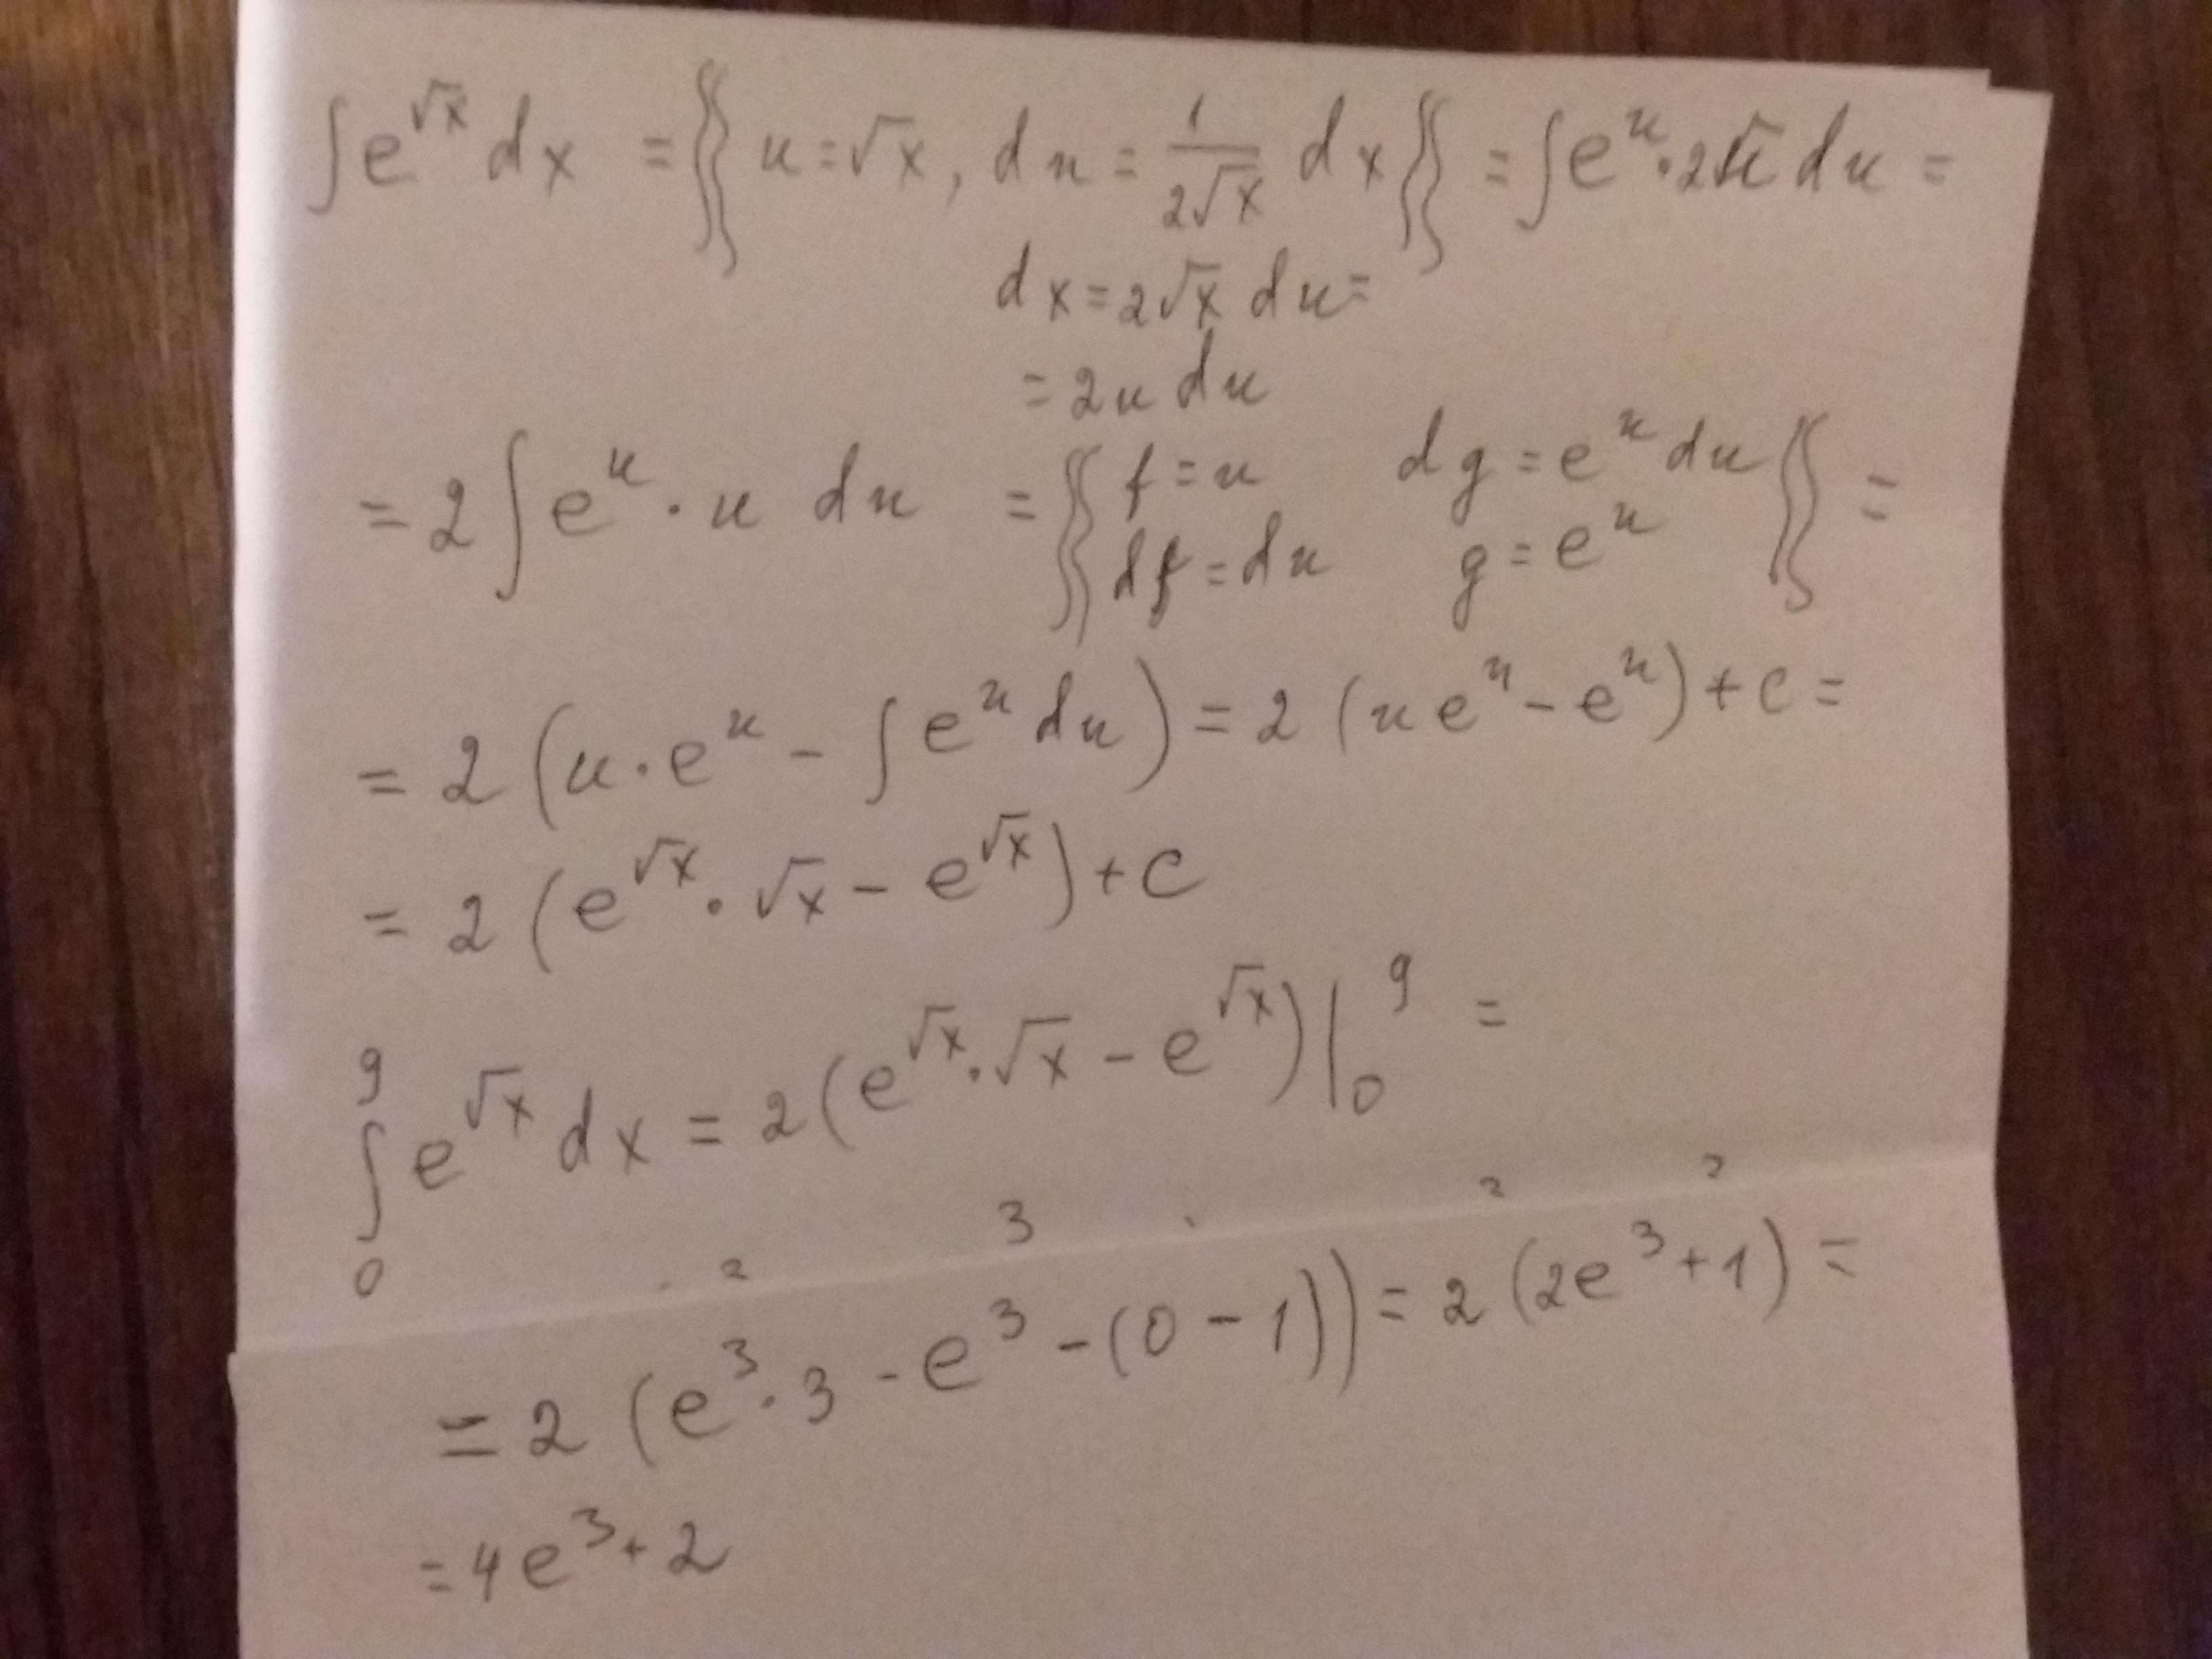 ∫e^√x dx = {{ u=√x, du = 1/(2√x) dx }} = ∫e^u · 2u du =
dx = 2√x du =
= 2u du
= 2∫e^u · u du = {{ f = u dg = e^u du }} =
df = du g = e^u
= 2 (u · e^u - ∫e^u du) = 2 (u e^u - e^u) + C =
= 2 (e^√x · √x - e^√x) + C
∫_0^9 e^√x dx = 2 (e^√x · √x - e^√x) |_0^9 =
= 2 (e^3 · 3 - e^3 - (0 - 1)) = 2 (2e^3 + 1) =
= 4e^3 + 2